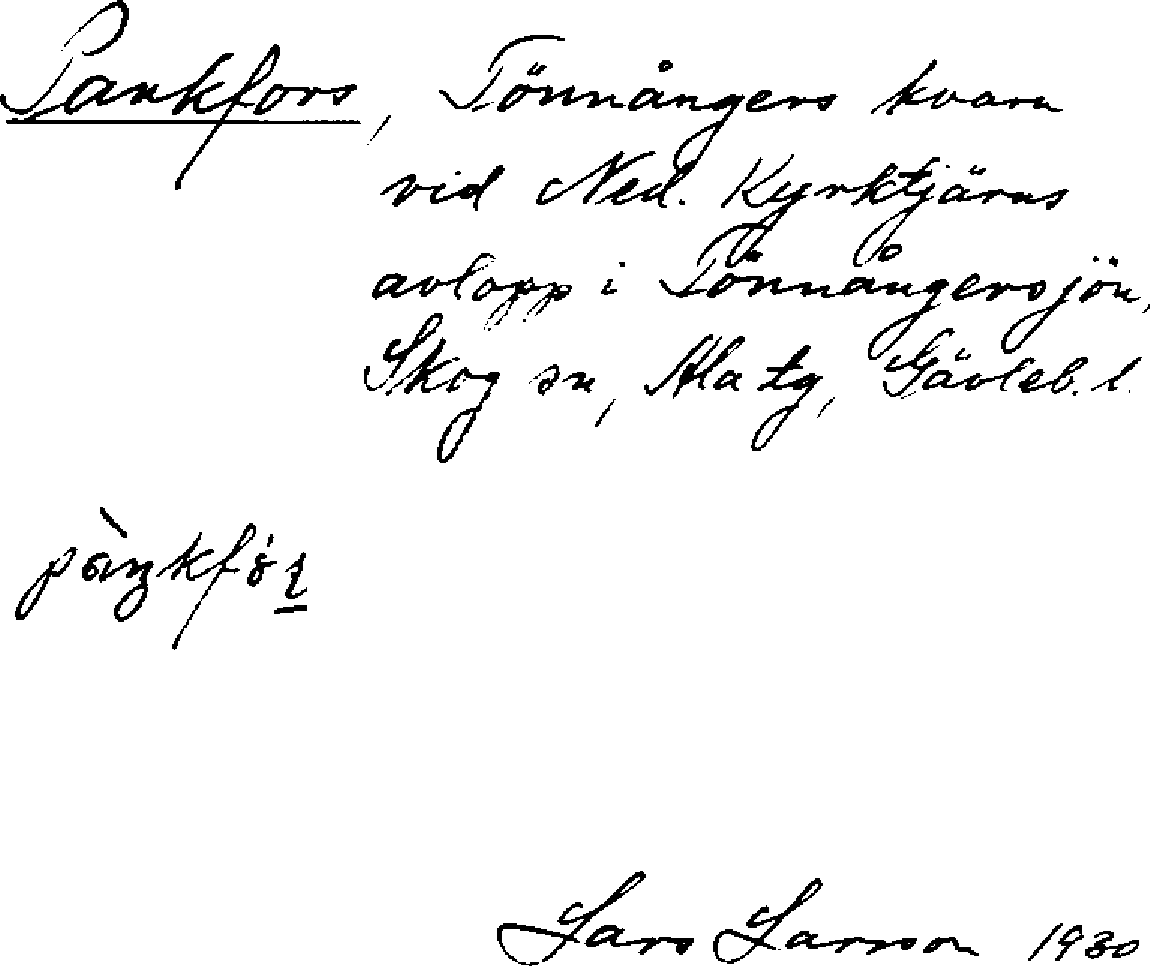 Pankfors, Tönnångers kvarn
vid Ned. Kyrktjärns
avlopp i Tönnångersjön,
Skog sn, Ala tg, Gävleb. l.
Lars Larsson 1930